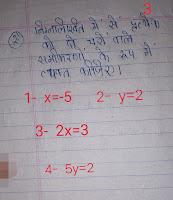 3
निम्नलिखित में से प्रत्येक
को दो चरों वाले
समीकरणों के रूप में
व्यक्त कीजिए।
1- x=-5 2- y=2
3- 2x=3
4- 5y=2